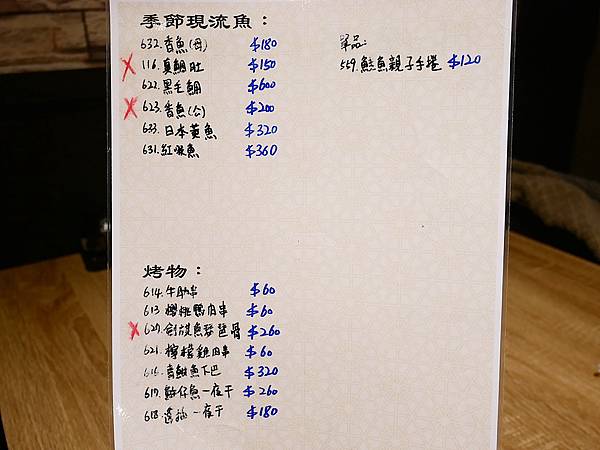 季節現流魚：
632.香魚(母) $180
116.真鯛肚 $150
622.黑毛鯛 $600
623.香魚(公) $200
633.日本黃魚 $320
631.紅喉魚 $360
單品:
559.鮭魚親子手捲 $120
烤物：
614.牛肋串 $60
613.櫻桃鴨肉串 $60
620.劍旗魚琵琶骨 $260
621.檸檬雞肉串 $60
616.青魽魚下巴 $320
617.魚一夜干 $260
618.一夜干 $180